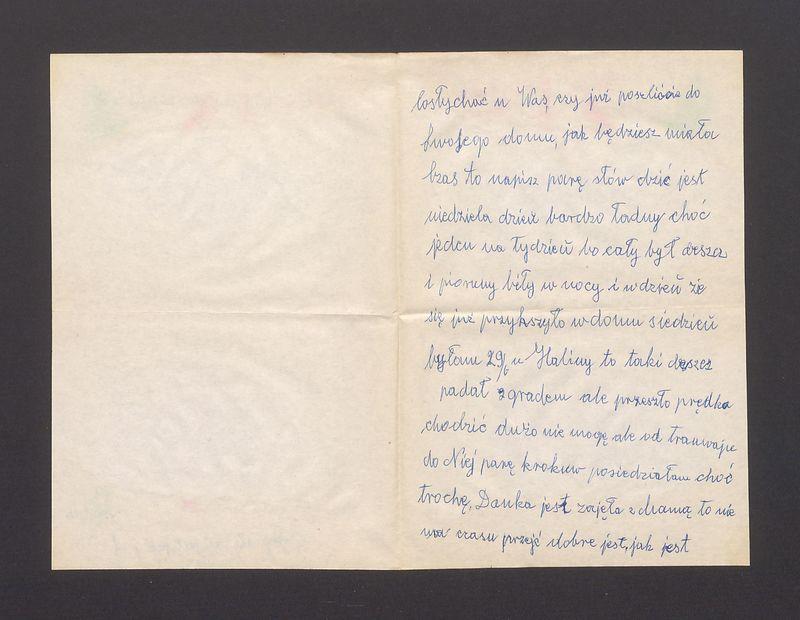 Cosłychać u Was, czy już poszliście do
swojego domu, jak będziesz miała
Czas to napisz parę słów dziś jest
niedziela dzień bardzo ładny choć
jeden na tydzień bo cały był deszcz
i pioruny biły w nocy i w dzień że
się już przykszyło w domu siedzieć
byłam 29/6 u Haliny to taki deszcz
padał z gradem ale przeszło prędko
chodzić dużo nie mogę ale od tramwaju
do Niej parę krokuw posiedziałam choć
trochę, Danka jest zajęta z mamą to nie
ma czasu przejć dobre jest, jak jest